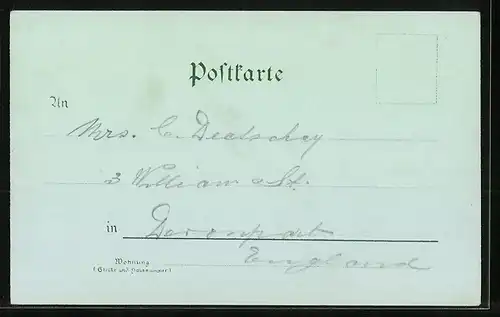 Postkarte
An
Mrs. C. Deatschey
3 William St.
in Devonport
England
Wohnung
(Straße und Hausnummer)